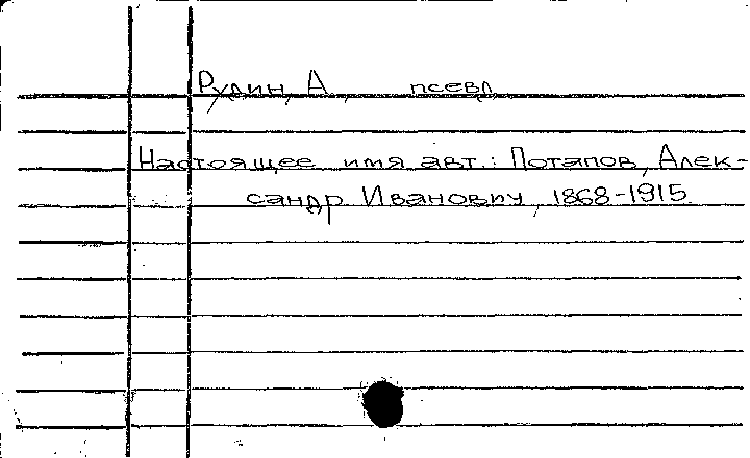 Рудин, А., псевд.
Настоящее имя авт.: Потапов, Алек-
сандр Иванович, 1868-1915.